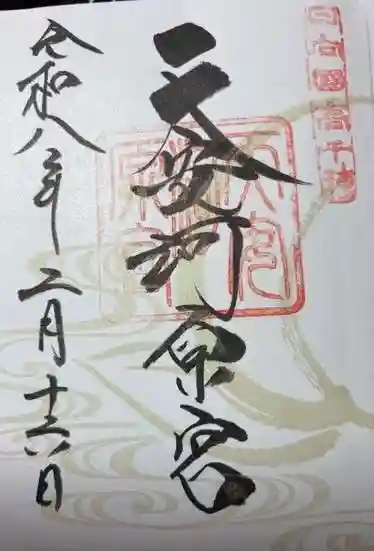 天安河原宮
令和八年二月十六日